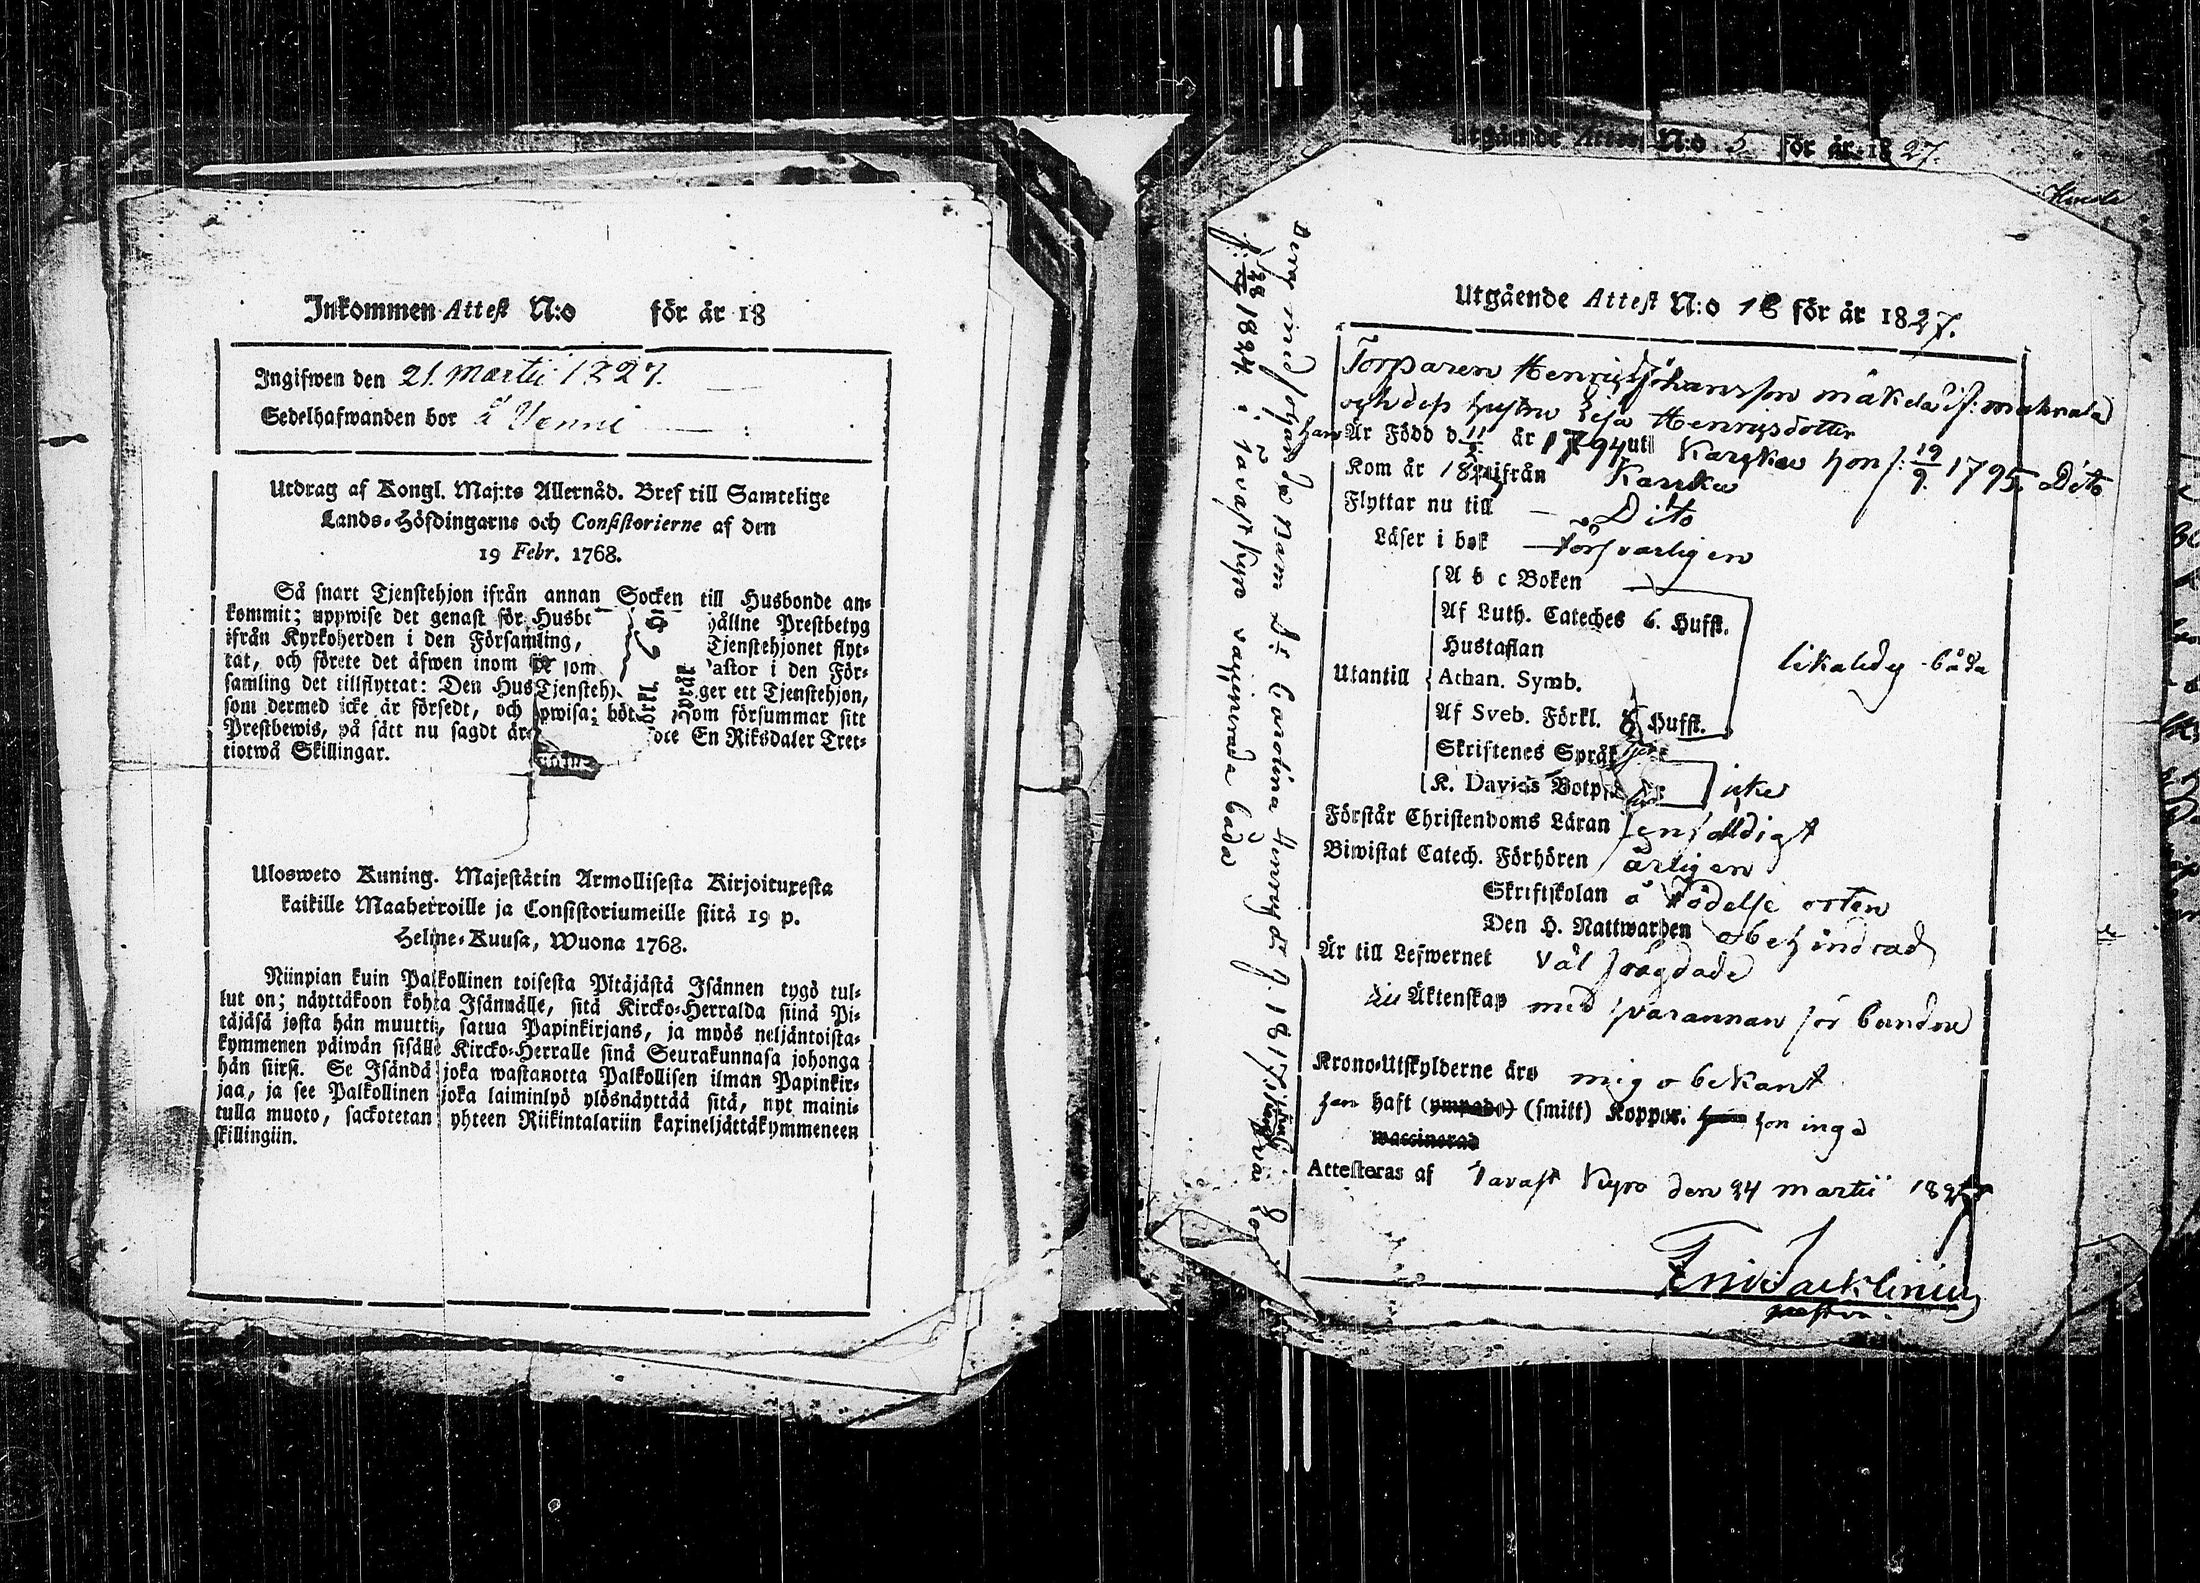 Inkommen Attest N:o för år 18
Ingifwen den 21. Martii 1827.
Sedelhafwanden bor å Venni
Utdrag af Kongl. Maj:ts Allernåd. Bref till Samtelige
Lands-Höfdingarne och Consistorierne af den
19 Febr. 1768.
Så snart Tjenstehjon ifrån annan Socken till Husbonde an-
kommit; uppwise det genast för Husbo hållne Prestbetyg
ifrån Kyrkoherden i den Församling, Tjenstehjonet flyt-
tat, och förete det äfwen inom som Pastor i den För-
samling det tillflyttat: Den Hus Tjensteh ger ett Tjenstehjon,
som dermed icke är försedt, och pwisa; böt som försummar sitt
Prestbewis, på sätt nu sagdt är En Riksdaler Tret-
tiotwå Skillingar.
Ulosweto Kuning. Majestätin Armollisesta Kirjoituxesta
kaikille Maaherroille ja Consistoriumeille siitä 19 p.
Helme-Kuusa, Wuona 1768.
Niinpian kuin Palkollinen toisesta Pitäjästä Isännen tygö tul-
lut on; näyttäkoon kohta Isännälle, sitä Kircko-Herralda siinä Pi-
täjäsä josta hän muutti, saatua Papinkirjans, ja myös neljäntoista-
kymmenen päiwän sisälle Kircko-Herralle sinä Seurakunnasa johonga
hän siirst. Se Isändä joka wastanotta Palkollisen ilman Papinkir-
jaa, ja see Palkollinen joka laiminlyö ylösnäyttää sitä, nyt maini-
tulla muoto, sackotetan yhteen Riikintalariin kaxineljättäkymmeneen
skillingiin.
Utgående Attest N:o 5 för år 1827.
Utgående Attest N:o 18 för år 1827.
Torparen Henric Johansson
och dess hustru Lisa Henricsdotter
han Är Född d 11 år 1794 uti Karcku hon f: 19/9 1795. Dito
Kom år 18 ifrån Karcku
Flyttar nu till Dito
Läser i bok försvarligen
A b c Boken
Af Luth. Cateches 6. Hufst.
Hustaflan
Utantill Athan. Symb. likaledes båda
Af Sveb. Förkl. 8 Hufst.
Skriftenes Språk
K. Davids Botps icke
Förstår Christendoms Läran enfaldigt
Biwistat Catech. Förhören årligen
Skriftskolan å Födelse orten
Den H. Nattwarden obehindrad
Är till Lefwernet väl frägdade
Äktenskap med hvarannan förbundne
Krono-Utskylderne äro mig obekant
han haft (ympade) (smitt) Koppor. hon inga
waccinerad
Attesteras af Tavast Kyro den 24 Martii 1827
pastor.
Deras medföljande Barn Dr: Carolina Henricsdr f. 1817
f: 28 1824. i Tavastkyro vaccinerade båda